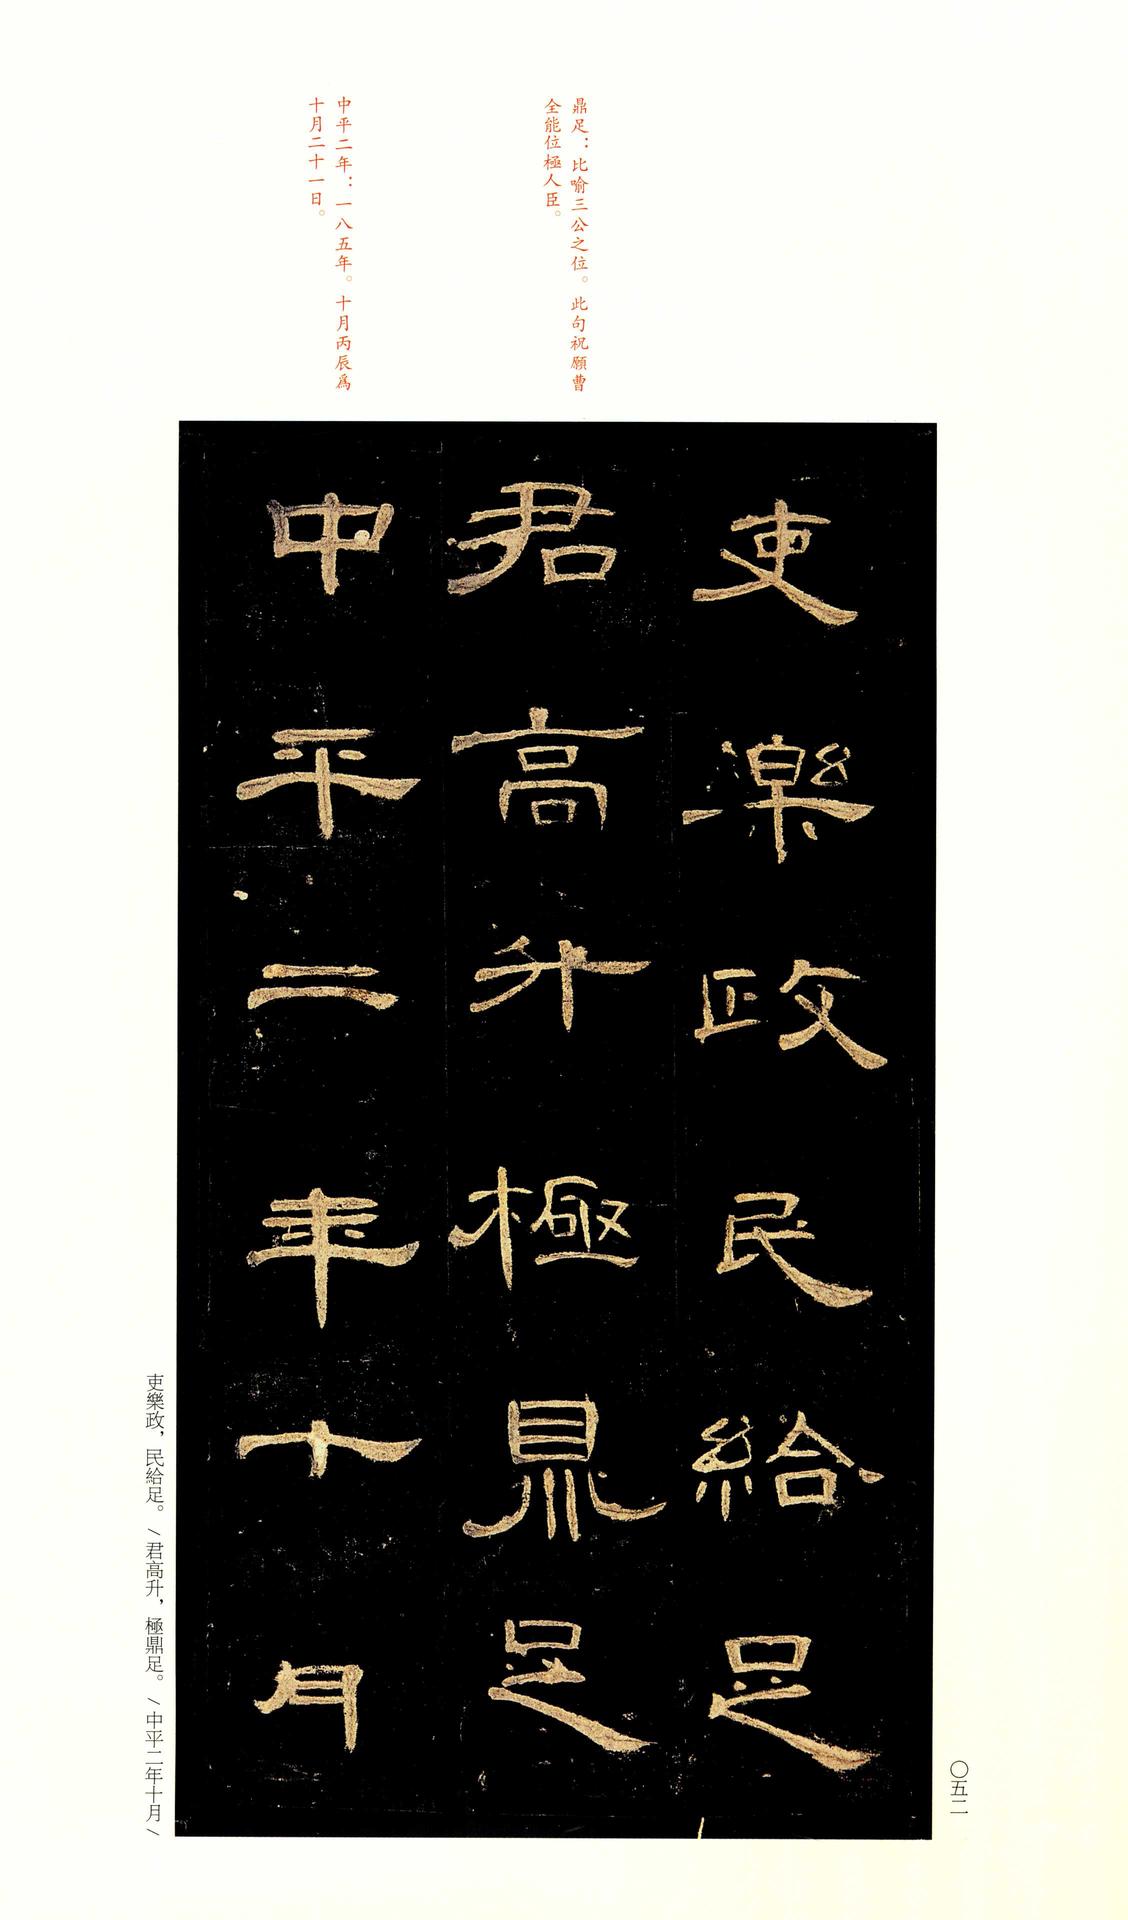 鼎足：比喻三公之位。此句祝願曹
全能位極人臣。
中平二年：一八五年。十月丙辰爲
十月二十一日。
吏樂政民給足
君高升極鼎足
中平二年十月
吏樂政，民給足。/君高升，極鼎足。/中平二年十月/
〇五二